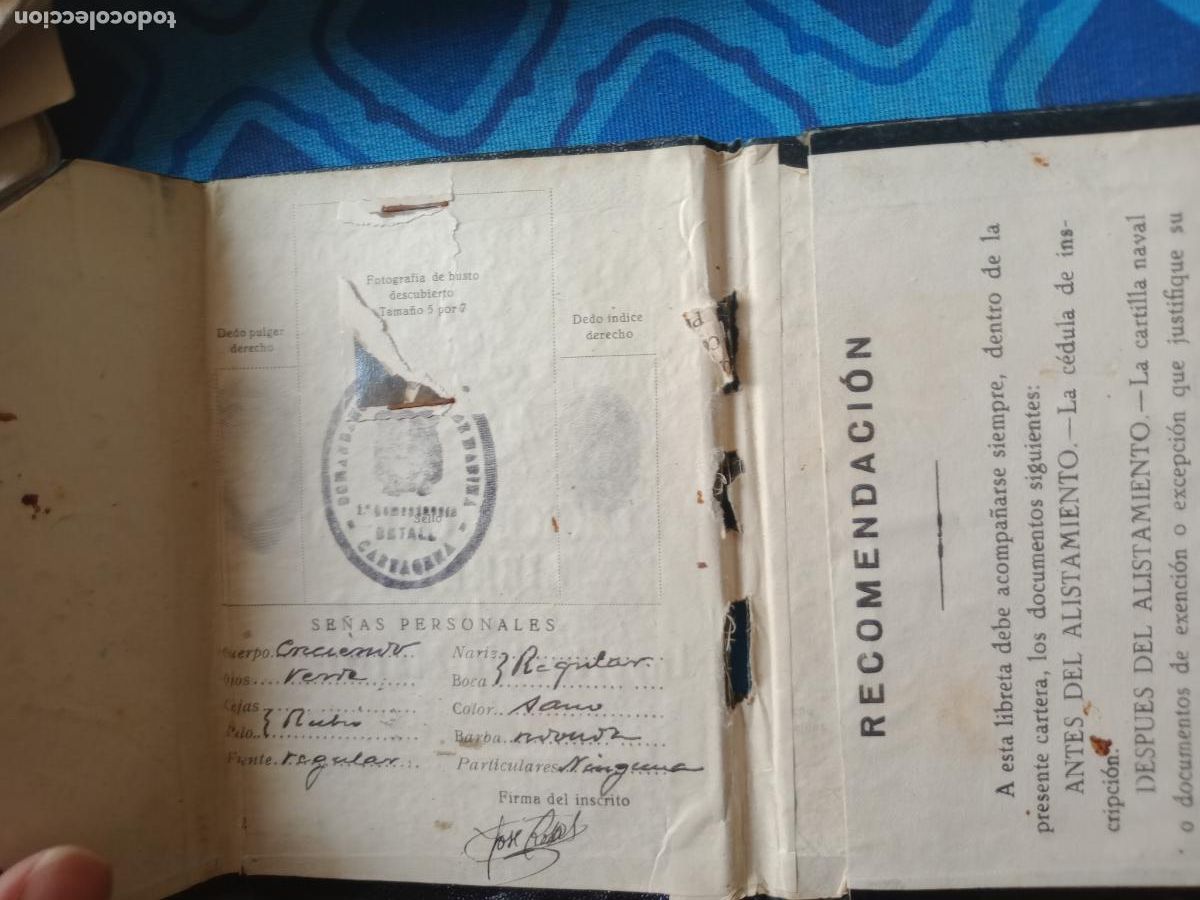 todocoleccion
Fotografía de busto
descubierto
Tamaño 5 por 7
Dedo pulgar
derecho
Dedo índice
derecho
1.ª Comandancia
Sello
DETALL
CARTAGENA
SEÑAS PERSONALES
Cuerpo. Creciendo
Ojos
Cejas
Pelo } Rubio
Frente. regular
Nariz
Boca } Regular
Color. sano
Barba
Particulares Ninguna
Firma del inscrito
José
RECOMENDACIÓN
A esta libreta debe acompañarse siempre, dentro de la
presente cartera, los documentos siguientes:
ANTES DEL ALISTAMIENTO.—La cédula de ins-
cripción.
DESPUES DEL ALISTAMIENTO.—La cartilla naval
o documentos de exención o excepción que justifique su